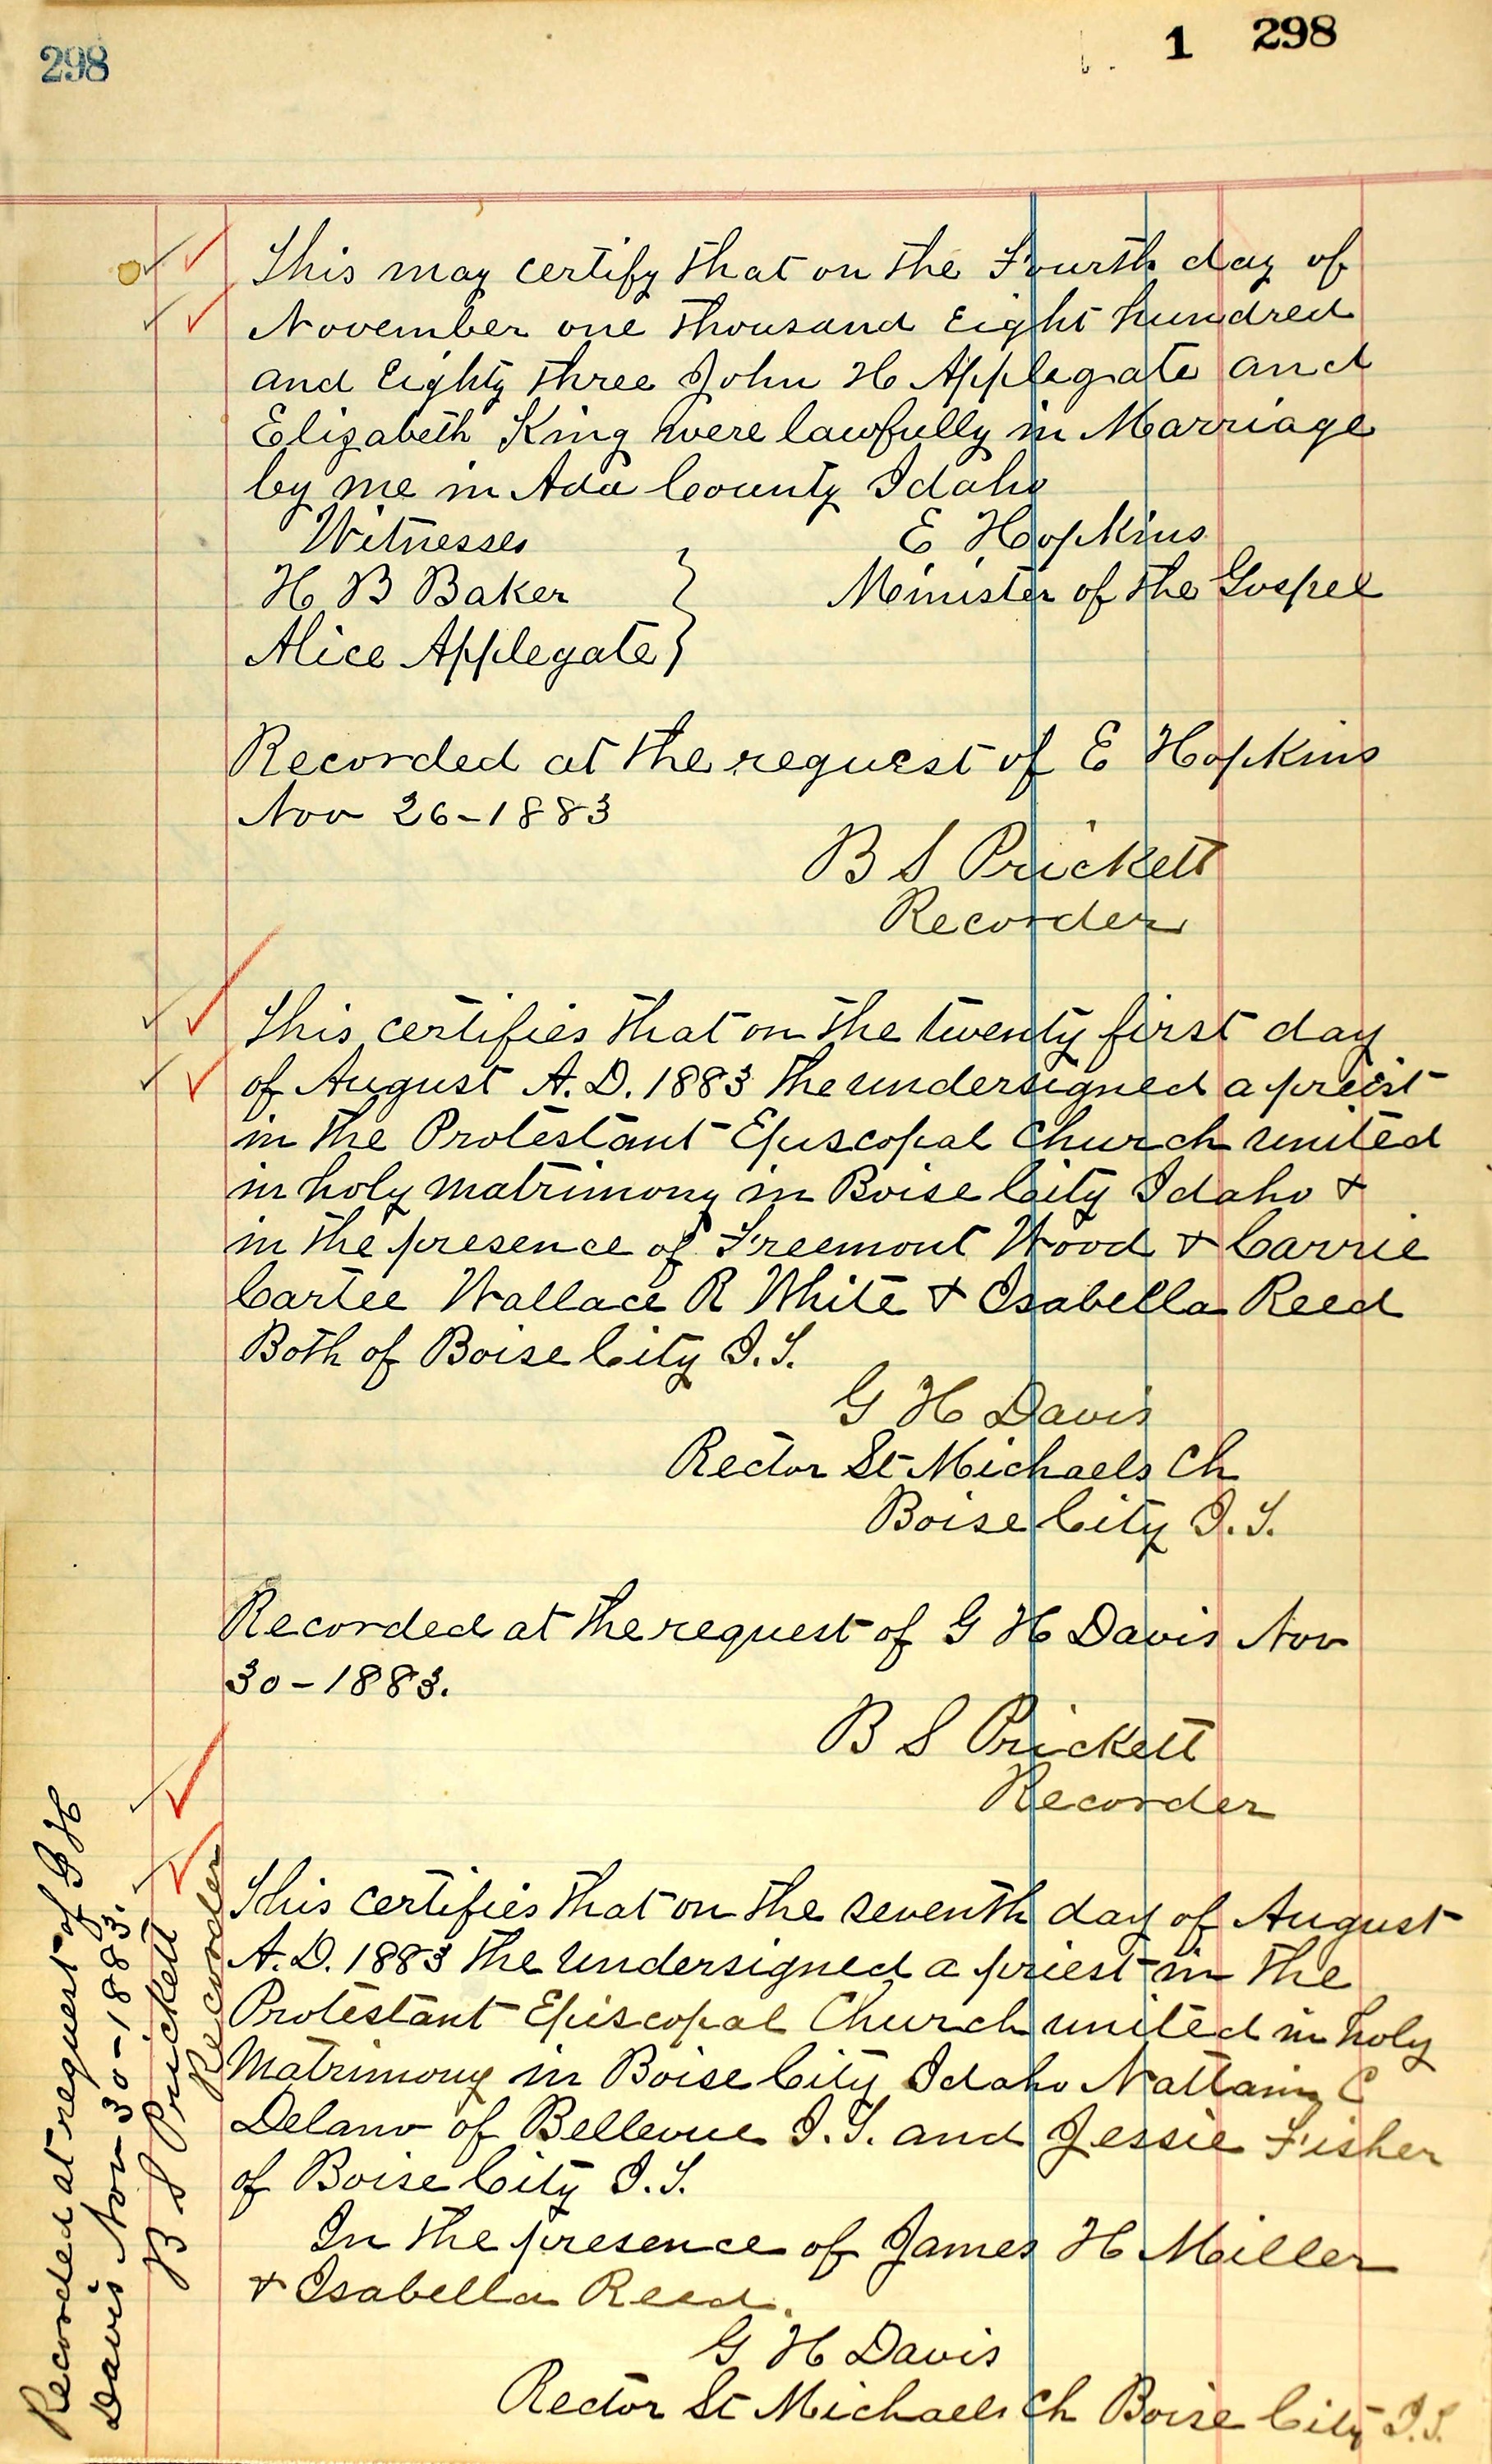 298
1 298
This may certify that on the Fourth day of
November one thousand Eight hundred
and Eighty three John H Applegate and
Elizabeth King were lawfully in Marriage
by me in Ada County Idaho
Witnesses
E Hopkins
H B Baker
Minister of the Gospel
Alice Applegate
Recorded at the request of E Hopkins
Nov 26-1883
B S Prickett
Recorder
This certifies that on the twenty first day
of August A.D. 1883 the undersigned a preist
in the Protestant Episcopal Church united
in holy matrimony in Boise City Idaho &
in the presence of Freemont Wood & Carrie
Cartee Wallace R White & Isabella Reed
Both of Boise City I.T.
G H Davis
Rector St Michaels Ch
Boise City I.T.
Recorded at the request of G H Davis Nov
30-1883.
B S Prickett
Recorder
This certifies that on the seventh day of August
A.D. 1883 the undersigned a priest in the
Protestant Episcopal Church united in holy
Matrimony in Boise City Idaho C
Delano of Bellevue I.T. and Jessie Fisher
of Boise City I.T.
In the presence of James H Miller
& Isabella Reed.
G H Davis
Rector St Michaels Ch Boise City I.T.
Recorded at request of G H
Davis Nov 30-1883.
B S Prickett
Recorder